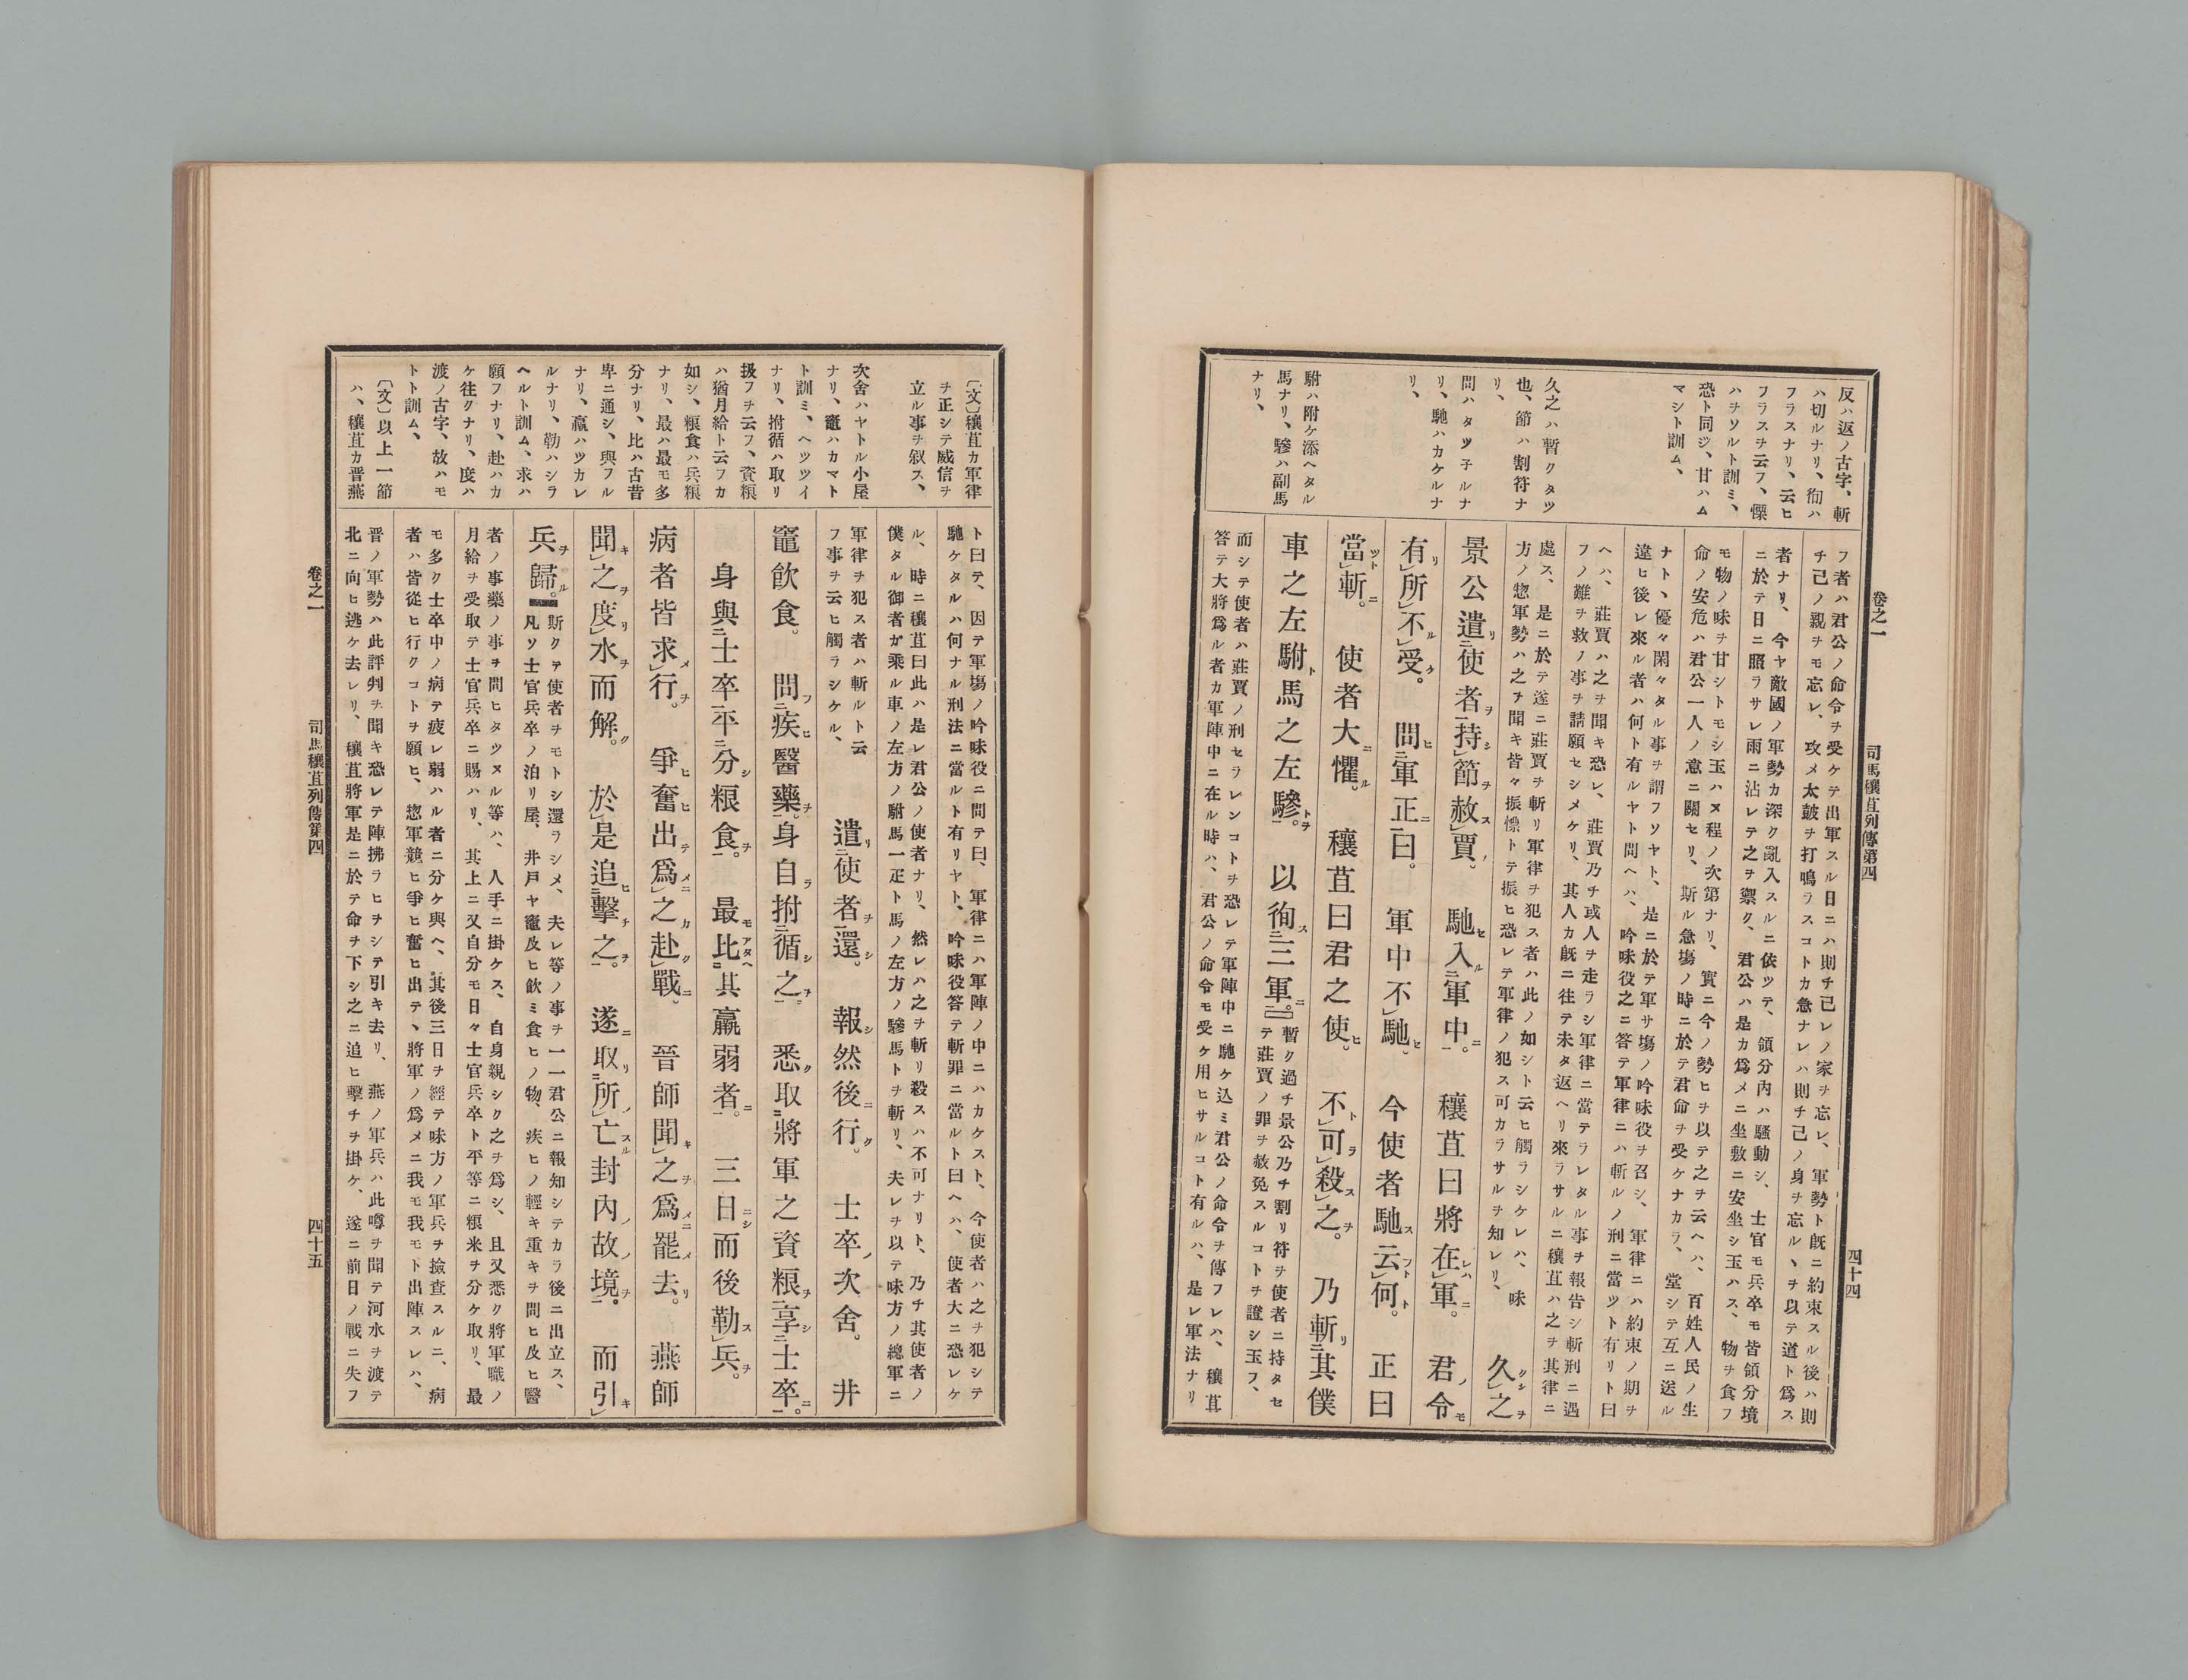 反ハ返ノ古字、斬
ハ切ルナリ、徇ハ
フラスナリ、云ヒ
フラスヲ云フ、慄
ハヲソルト訓ミ、
恐ト同ジ、甘ハム
マシト訓ム、
久之ハ暫クタツ
也、節ハ割符ナ
リ、
問ハタツ子ルナ
リ、馳ハカケルナ
リ、
駙ハ附ケ添ヘタル
馬ナリ、驂ハ副馬
ナリ、
卷之一
司馬穰苴列傳第四
四十四
フ者ハ君公ノ命令ヲ受ケテ出軍スル日ニハ則チ已レノ家ヲ忘レ、軍勢ト既ニ約束スル後ハ則
チ己ノ親ヲモ忘レ、攻メ太鼓ヲ打鳴ラスコトカ急ナレハ則チ己ノ身ヲ忘ルヽヲ以テ道ト爲ス
者ナリ、今ヤ敵國ノ軍勢カ深ク亂入スルニ依ツテ、領分内ハ騷動シ、士官モ兵卒モ皆領分境
ニ於テ日ニ照ラサレ雨ニ沾レテ之ヲ禦ク、君公ハ是カ爲メニ坐敷ニ安坐シ玉ハス、物ヲ食フ
モ物ノ味ヲ甘シトモシ玉ハヌ程ノ次第ナリ、實ニ今ノ勢ヒヲ以テ之ヲ云ヘハ、百姓人民ノ生
命ノ安危ハ君公一人ノ意ニ關セリ、斯ル急塲ノ時ニ於テ君命ヲ受ケナカラ、堂シテ互ニ送ル
ナトヽ優々閑々タル事ヲ謂フソヤト、是ニ於テ軍サ塲ノ吟味役ヲ召シ、軍律ニハ約束ノ期ヲ
違ヒ後レ來ル者ハ何ト有ルヤト問ヘハ、吟味役之ニ答テ軍律ニハ斬ルノ刑ニ當ツト有リト曰
ヘハ、莊賈ハ之ヲ聞キ恐レ、莊賈乃チ或人ヲ走ラシ軍律ニ當テラレタル事ヲ報告シ斬刑ニ遇
フノ難ヲ救ノ事ヲ請願セシメケリ、其人カ既ニ往テ未タ返ヘリ來ラサルニ穰苴ハ之ヲ其律ニ
處ス、是ニ於テ遂ニ莊賈ヲ斬リ軍律ヲ犯ス者ハ此ノ如シト云ヒ觸ラシケレハ、味
方ノ惣軍勢ハ之ヲ聞キ皆々振慄トテ振ヒ恐レテ軍律ノ犯ス可カラサルヲ知レリ、
久之
景公遣使者持節赦賈。馳入軍中。穰苴曰將在軍。君令
有所不受。問軍正曰。軍中不馳。今使者馳云何。正曰
當斬。使者大懼。穰苴曰君之使。不可殺之。乃斬其僕
車之左駙馬之左驂。以徇三軍。
暫ク過チ景公乃チ割リ符ヲ使者ニ持タセ
テ莊賈ノ罪ヲ赦免スルコトヲ證シ玉フ、
而シテ使者ハ莊賈ノ刑セラレンコトヲ恐レテ軍陣中ニ馳ケ込ミ君公ノ命令ヲ傳フレハ、穰苴
答テ大將爲ル者カ軍陣中ニ在ル時ハ、君公ノ命令モ受ケ用ヒサルコト有ルハ、是レ軍法ナリ
〔文〕穰苴カ軍律
ヲ正シテ威信ヲ
立ル事ヲ叙ス、
次舍ハヤトル小屋
ナリ、竈ハカマト
ト訓ミ、ヘツツイ
ナリ、拊循ハ取リ
扱フヲ云フ、資粮
ハ猶月給ト云フカ
如シ、粮食ハ兵粮
ナリ、最ハ最モ多
分ナリ、比ハ古昔
卑ニ通シ、與フル
ナリ、羸ハツカレ
ルナリ、勒ハシラ
ヘルト訓ム、求ハ
願フナリ、赴ハカ
ケ往クナリ、度ハ
渡ノ古字、故ハモ
トト訓ム、
〔文〕以上一節
ハ、穰苴カ晋燕
ト曰テ、因テ軍塲ノ吟味役ニ問テ曰、軍律ニハ軍陣ノ中ニハカケスト、今使者ハ之ヲ犯シテ
馳ケタルハ何ナル刑法ニ當ルト有リヤト、吟味役答テ斬罪ニ當ルト曰ヘハ、使者大ニ恐レケ
ル、時ニ穰苴曰此ハ是レ君公ノ使者ナリ、然レハ之ヲ斬リ殺スハ不可ナリト、乃チ其使者ノ
僕タル御者ガ乘ル車ノ左方ノ駙馬一疋ト馬ノ左方ノ驂馬トヲ斬リ、夫レヲ以テ味方ノ總軍ニ
軍律ヲ犯ス者ハ斬ルト云
フ事ヲ云ヒ觸ラシケル、
遣使者還。報然後行。士卒次舍。井
竈飲食。問疾醫藥。身自拊循之。悉取將軍之資粮享士卒。
身與士卒平分粮食。最比其羸弱者。三日而後勒兵。
病者皆求行。爭奮出爲之赴戰。晉師聞之爲罷去。燕師
聞之度水而解。於是追擊之。遂取所亡封内故境。而引
兵歸。
斯クテ使者ヲモトシ還ラシメ、夫レ等ノ事ヲ一一君公ニ報知シテカラ後ニ出立ス、
凡ソ士官兵卒ノ泊リ屋、井戸ヤ竈及ヒ飲ミ食ヒノ物、疾ヒノ輕キ重キヲ問ヒ及ヒ醫
者ノ事藥ノ事ヲ問ヒタツヌル等ハ、人手ニ掛ケス、自身親シク之ヲ爲シ、且又悉ク將軍職ノ
月給ヲ受取テ士官兵卒ニ賜ハリ、其上ニ又自分モ日々士官兵卒ト平等ニ粮米ヲ分ケ取リ、最
モ多ク士卒中ノ病テ疲レ弱ハル者ニ分ケ與ヘ、其後三日ヲ經テ味方ノ軍兵ヲ撿查スルニ、病
者ハ皆從ヒ行クコトヲ願ヒ、惣軍競ヒ爭ヒ奮ヒ出テヽ將軍ノ爲メニ我モ我モト出陣スレハ、
晋ノ軍勢ハ此評判ヲ聞キ恐レテ陣拂ラヒヲシテ引キ去リ、燕ノ軍兵ハ此噂ヲ聞テ河水ヲ渡テ
北ニ向ヒ逃ケ去レリ、穰苴將軍是ニ於テ命ヲ下シ之ニ追ヒ擊チヲ掛ケ、遂ニ前日ノ戰ニ失フ
卷之一
司馬穰苴列傳第四
四十五